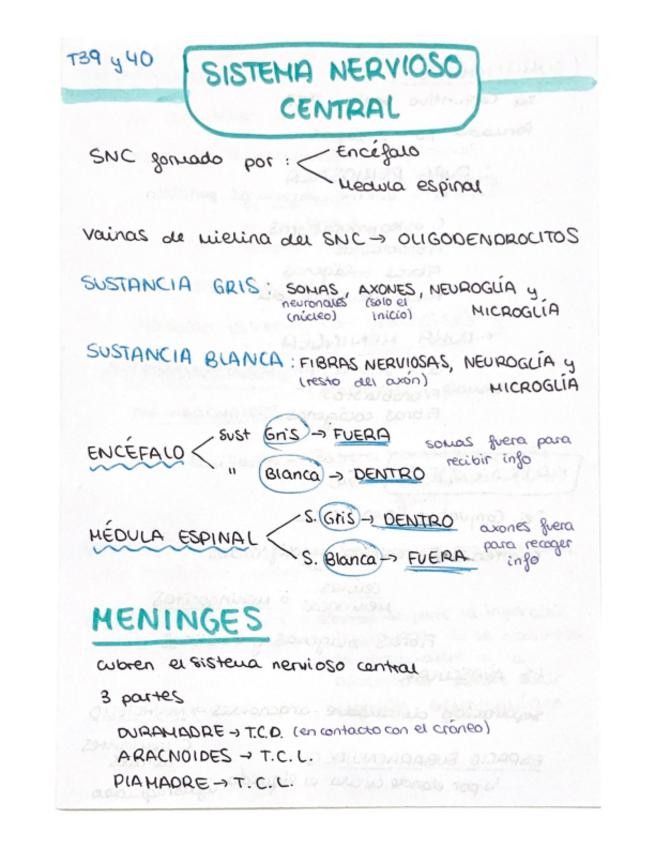 T39 y 40
SISTEMA NERVIOSO
CENTRAL
SNC formado por : Encéfalo
Medula espinal
Vainas de mielina del SNC → OLIGODENDROCITOS
SUSTANCIA GRIS : SOMAS, AXONES, NEUROGLÍA y
neuronales (solo el
(núcleo) inicio) MICROGLÍA
SUSTANCIA BLANCA : FIBRAS NERVIOSAS, NEUROGLÍA y
(resto del axón) MICROGLÍA
ENCÉFALO Sust Gris → FUERA
" Blanca → DENTRO
somas fuera para
recibir info
MÉDULA ESPINAL S. Gris → DENTRO
S. Blanca → FUERA
axones fuera
para recoger
info
MENINGES
cubren el sistema nervioso central
3 partes
DURAMADRE → T.C.D. (en contacto con el cráneo)
ARACNOIDES → T.C.L.
PIAMADRE → T.C.L.